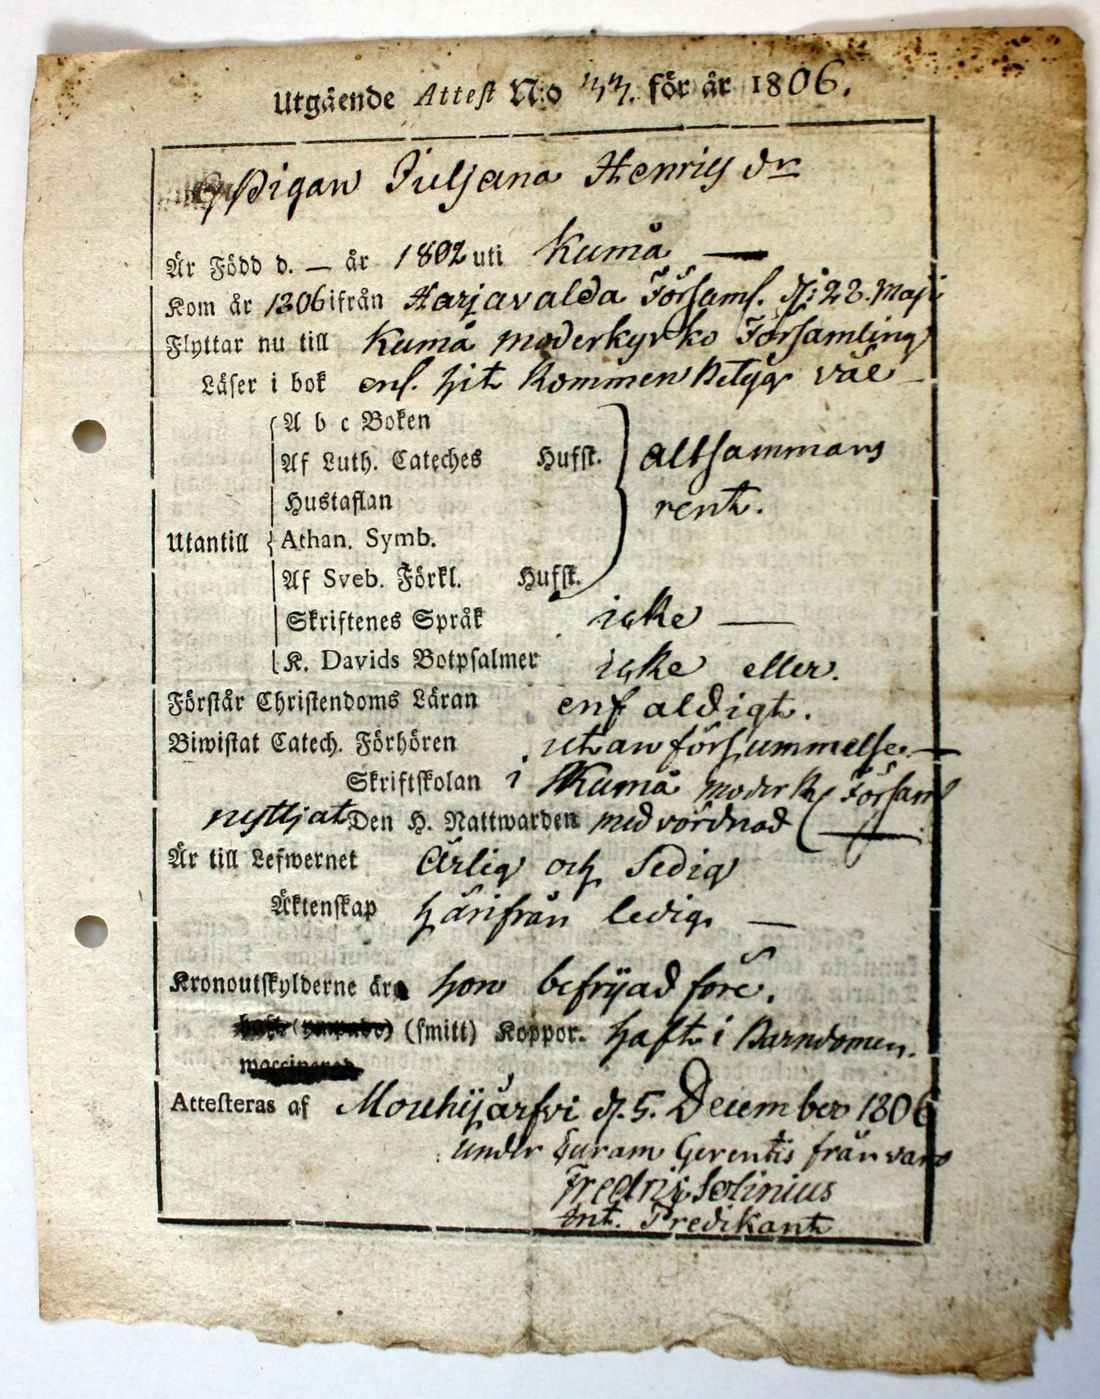 Utgående Attest N:o 33. för år 1806.
Pigan Juljana Henrics dr
Är Född d. — år 1802 uti Kumå —
Kom år 1806 ifrån Harjavalda Församl. d: 28. Maji
Flyttar nu till Kumå moderkyrko Församling
Läser i bok enl. hit kommen Betyg väl
A b c Boken
Af Luth. Cateches Hufst. altsammans
Hustaflan rent.
Utantill Athan. Symb.
Af Sveb. Förkl. Hufst.
Skriftenes Språk icke —
K. Davids Botpsalmer icke eller.
Förstår Christendoms Läran enfaldigt.
Biwistat Catech. Förhören utan försummelse. —
Skriftskolan i Kumå moderk. Församl
nyttjat Den H. Nattwarden med vördnad
Är till Lefwernet Ärlig och Sedig
Äktenskap härifrån ledig. —
Kronoutskylderne är hon befrijad före.
(smitt) Koppor. haft i Barndomen.
waccinerad
Attesteras af Mouhijärfvi d. 5. December 1806
under Curam Gerentis frånvaro
Fredric Solinius
Ant. Predikant